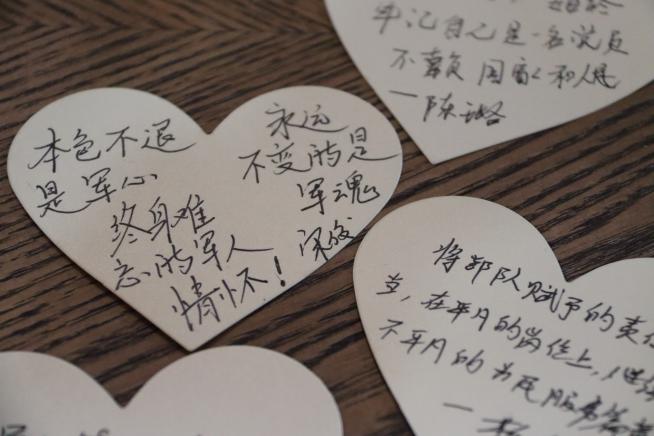 牢记自己是一名党员
不辜负国家和人民
一陈璐
本色不退
是军心
永远
不变的是
军魂
终身难
忘的军人
情怀！
将部队赋予的责任
岁，在平凡的岗位上，继续
不平凡的为民服务篇章